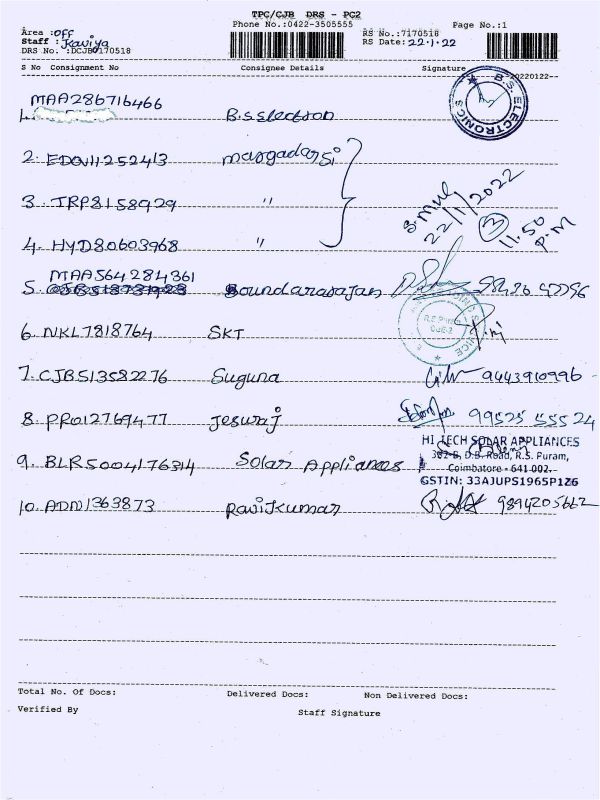 TPC/CJB DRS - PC2
Area :OFF Phone No.:0422-3505555 Page No.:1
Staff : Kaviya RS No.:7170518
DRS No. :DCJB7170518 RS Date: 22-1-22
S No Consignment No Consignee Details Signature 20220122--
B.S. ELECTRONICS
MAA286716466
1. B.S Electron
2. EDO411252413 margadarsi
3. TRP8158929 "
4. HYD80603968 "
22/1/2022
3 11.50 P.M
MAA564284361
5. Soundararajan
6. NKL7818764 SKT
7. CJB513582276 Suguna 9443910996
8. PRO12769477 Jesuraj 99525 55524
HI TECH SOLAR APPLIANCES
9. BLR5004176314 Solar Appliances 382-B, D.B. Road, R.S. Puram,
Coimbatore - 641 002.
GSTIN: 33AJUPS1965P1Z6
10. ADN1363873 Ravikumar 9894205662
Total No. Of Docs: Delivered Docs: Non Delivered Docs:
Verified By Staff Signature